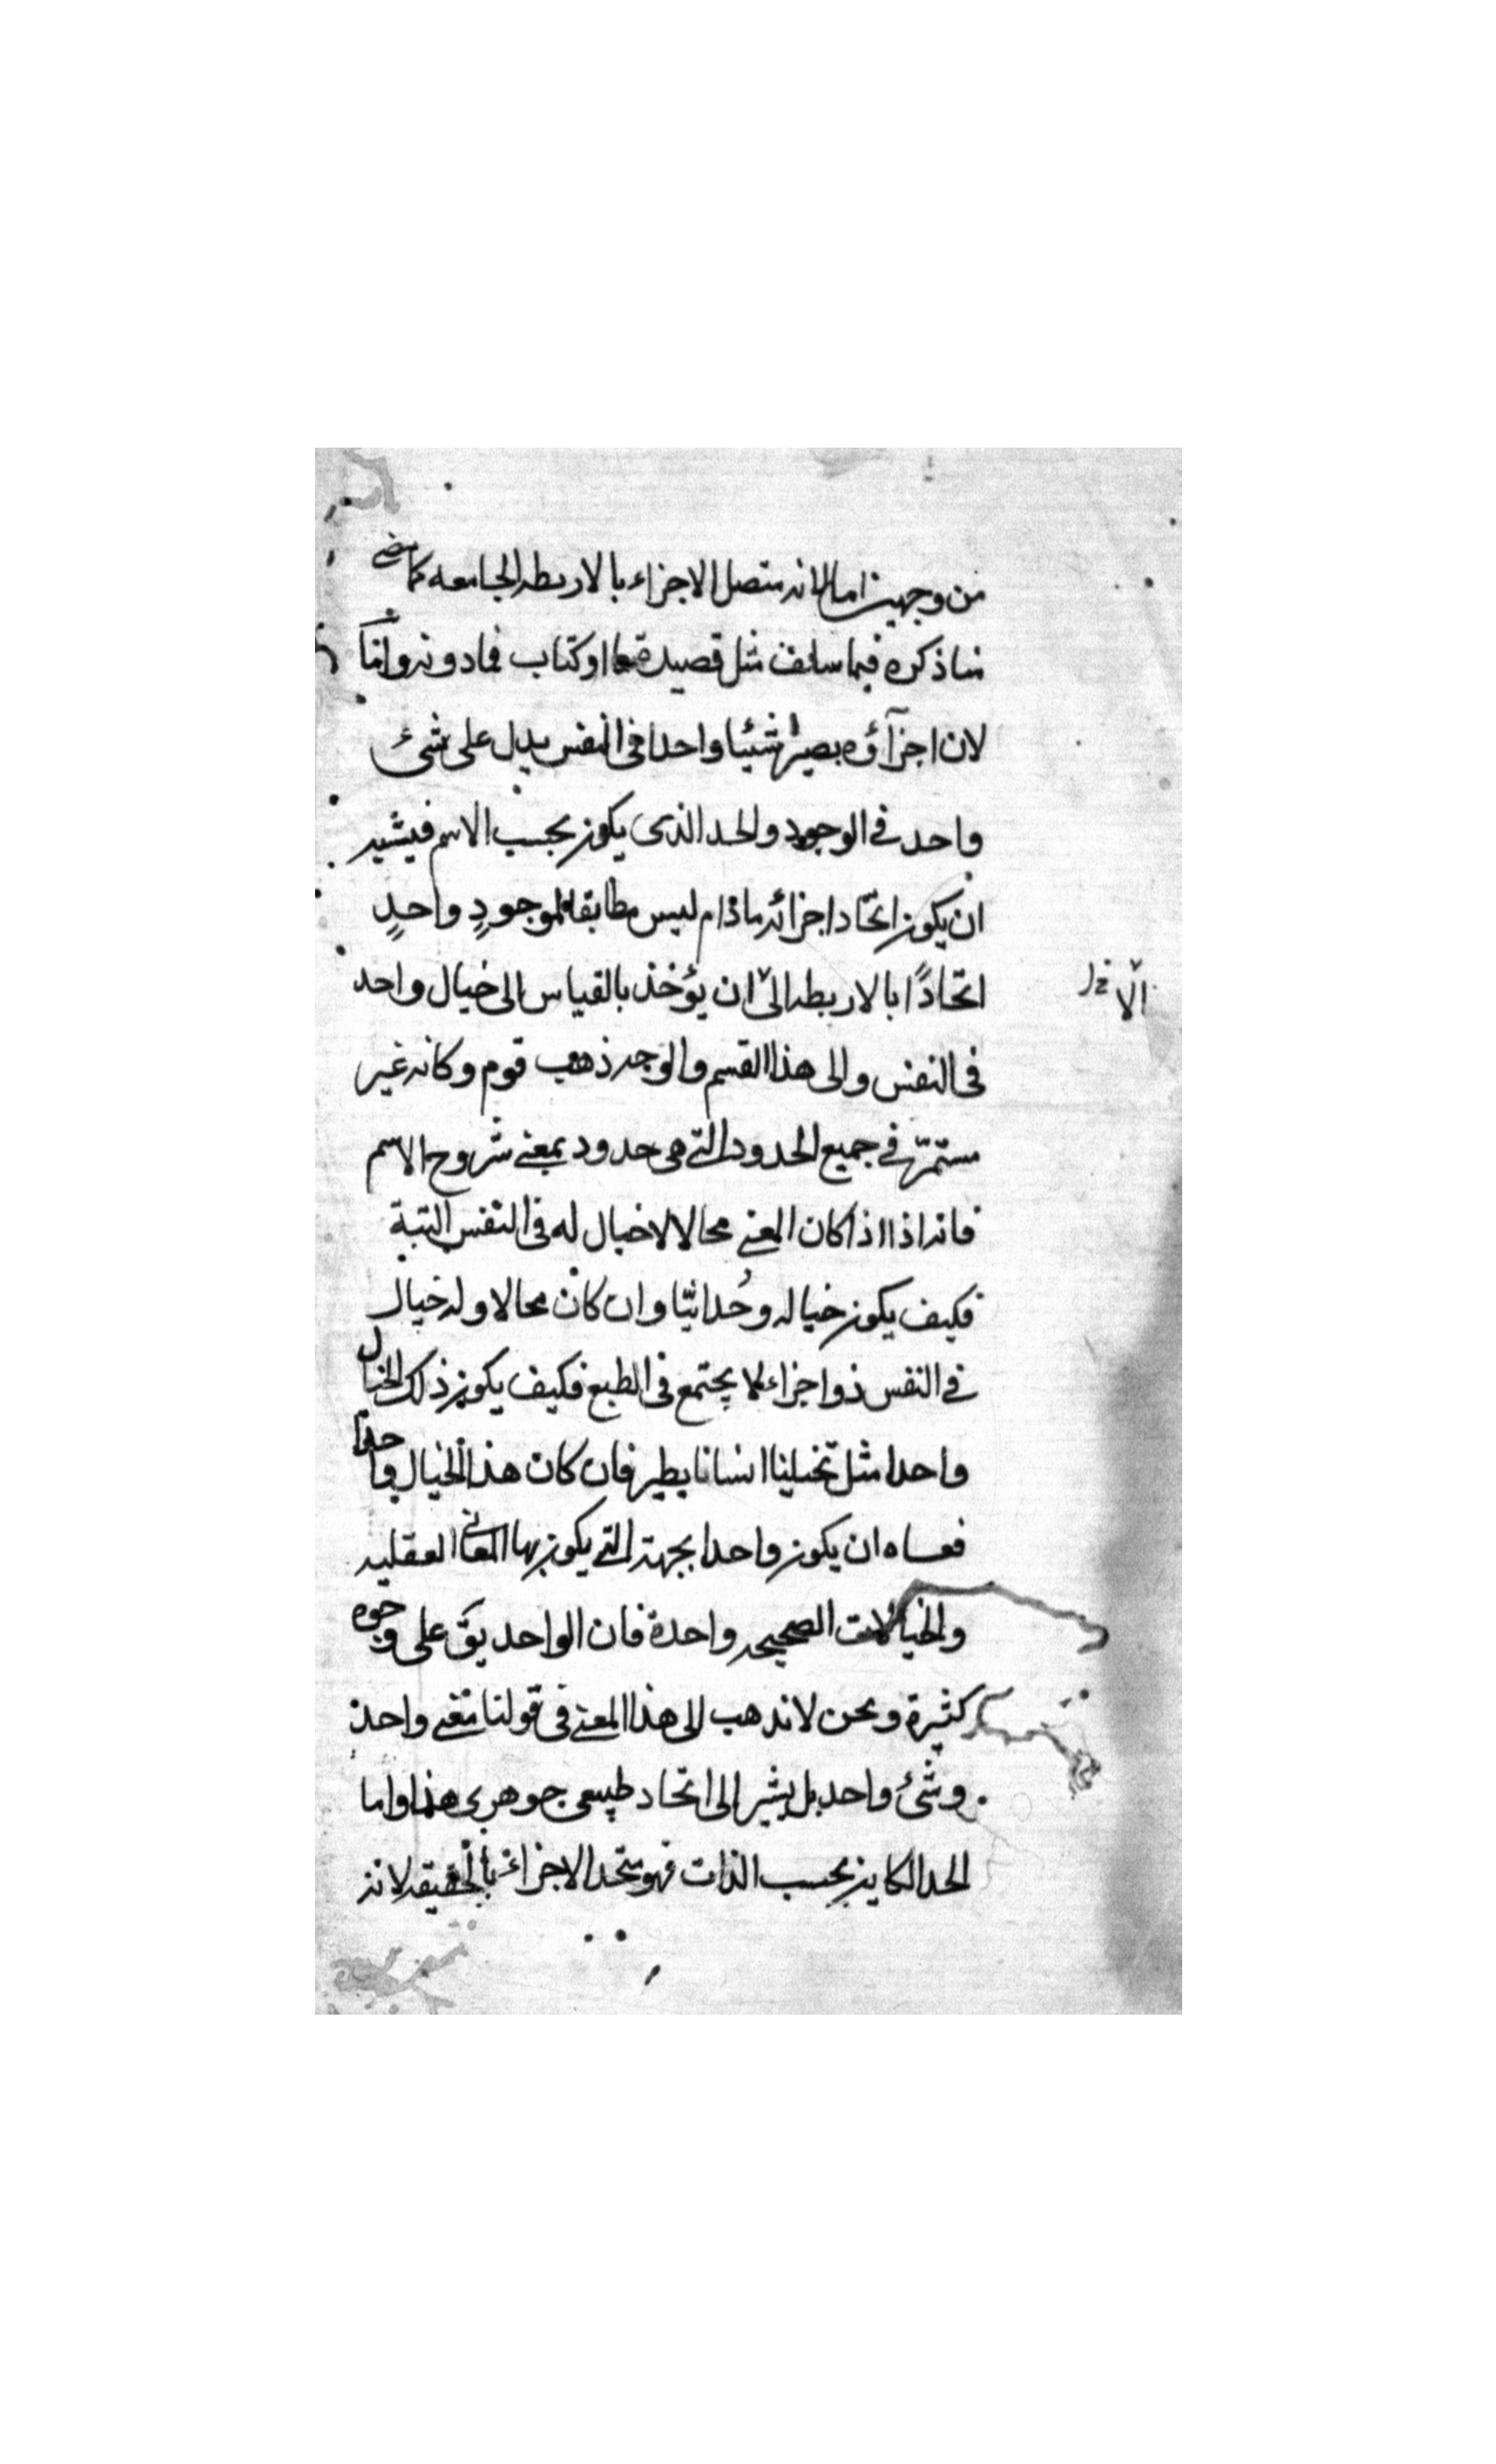 من وجهين اما لانه متصل الاجزاء بالاربطه الجامعه كما مضى
منا ذكره فيما سلف مثل قصيدة ما او كتاب فما دونه واما
لان اجزاؤه يصير شيئا واحدا فى النفس يدل على شئ
واحد في الوجود والحد الذى يكون بحسب الاسم فيشير
ان يكون اتحاد اجزائه ماذام ليس مطابقا لموجودٍ واحدٍ
اتحادًا بالاربطه الى ان يؤخذ بالقياس الى خيال واحد
الا خل
فى النفس والى هذا القسم والوجه ذهب قوم وكانه غير
مستمر في جميع الحدود التى هى حدود بمعنى شروح الاسم
فانه اذا اذا كان المعنى محالا لا خيال له فى النفس البتة
فكيف يكون خياله وحدانيّا وان كان محالا وله خيال
في النفس ذو اجزاء لا يجتمع فى الطبع فكيف يكون ذلك الخيال
واحدا مثل تخيلنا انسانا يطير فان كان هذا الخيال واحدا
فعساه ان يكون واحدا بجهة التى يكون بها المعانى العقليه
والخيالات الصحيحه واحدة فان الواحد يق على وجوه
كثيرة ونحن لا نذهب الى هذا المعنى فى قولنا معنى واحد
وشئ واحد بل يشير الى اتحاد طبيعى جوهرى هذا واما
الحد الكاين بحسب الذات فهو متحد الاجزاء بالحقيقه لانه